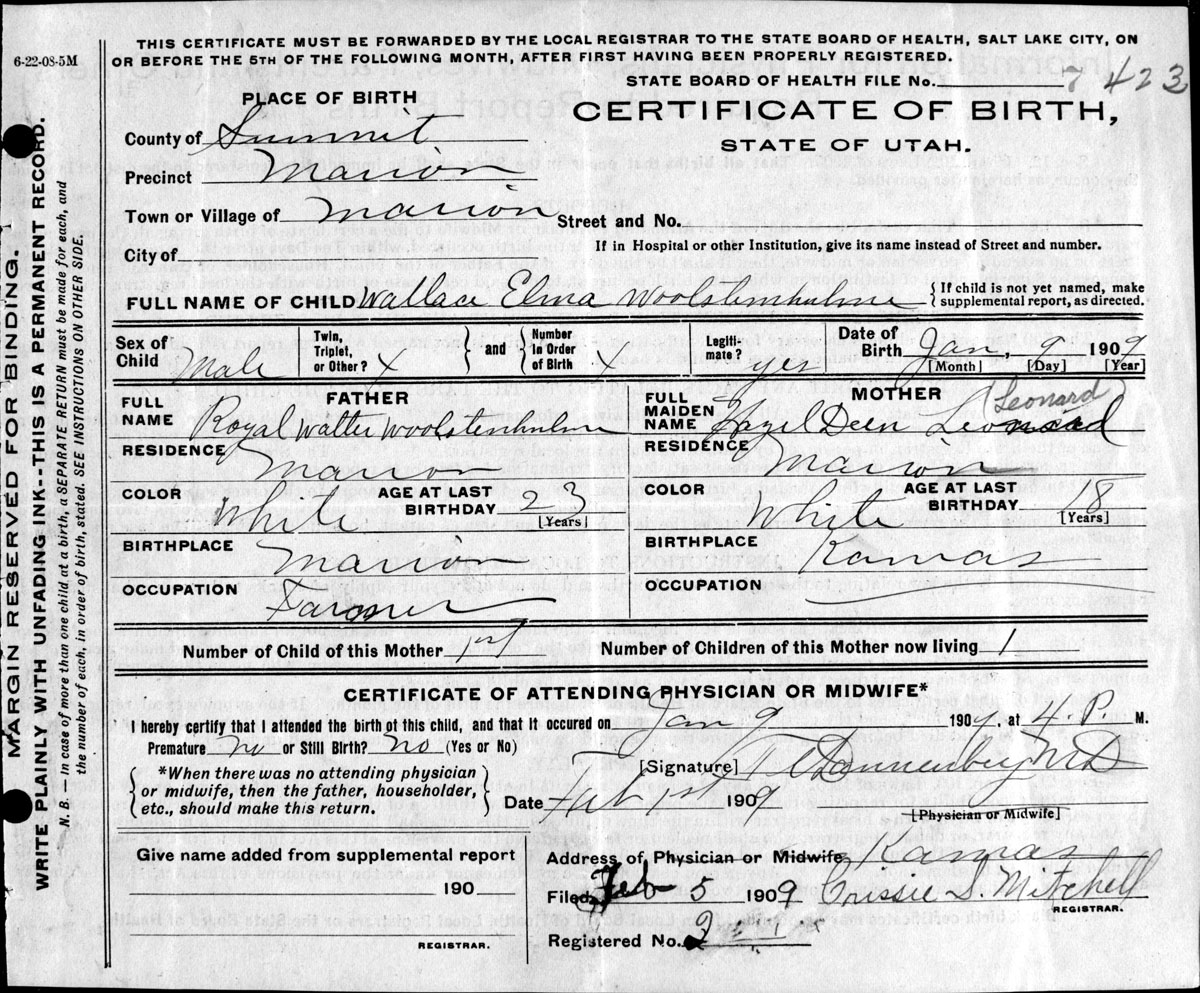 6-22-08-5M
THIS CERTIFICATE MUST BE FORWARDED BY THE LOCAL REGISTRAR TO THE STATE BOARD OF HEALTH, SALT LAKE CITY, ON
OR BEFORE THE 5TH OF THE FOLLOWING MONTH, AFTER FIRST HAVING BEEN PROPERLY REGISTERED.
STATE BOARD OF HEALTH FILE No. 7 423
PLACE OF BIRTH
CERTIFICATE OF BIRTH,
STATE OF UTAH.
County of Summit
Precinct Marion
Town or Village of Marion Street and No.
If in Hospital or other Institution, give its name instead of Street and number.
City of
FULL NAME OF CHILD Wallace Elma Woolstenhulme { If child is not yet named, make
supplemental report, as directed.
Sex of Child Male Twin, Triplet, or Other? X } and { Number in Order of Birth X Legiti-mate? yes Date of Birth Jan, 9 1909
[Month] [Day] [Year]
FATHER
FULL NAME Royal Walter Woolstenhulme
RESIDENCE Marion
COLOR White AGE AT LAST BIRTHDAY 23 [Years]
BIRTHPLACE Marion
OCCUPATION Farmer
MOTHER
Leonard
FULL MAIDEN NAME Hazel Deen Leonard
RESIDENCE Marion
COLOR White AGE AT LAST BIRTHDAY 18 [Years]
BIRTHPLACE Kamas
OCCUPATION
Number of Child of this Mother 1st Number of Children of this Mother now living 1
CERTIFICATE OF ATTENDING PHYSICIAN OR MIDWIFE*
I hereby certify that I attended the birth of this child, and that it occured on Jan 9 1909, at 4. P. M.
Premature no or Still Birth? no (Yes or No)
{ *When there was no attending physician
or midwife, then the father, householder,
etc., should make this return. }
[Signature] Dannenberg MD
Date Feb 1st 1909 [Physician or Midwife]
Give name added from supplemental report
190
REGISTRAR.
Address of Physician or Midwife Kamas
Filed Feb 5 1909 Crissie S. Mitchell
REGISTRAR.
Registered No. 2
MARGIN RESERVED FOR BINDING.
WRITE PLAINLY WITH UNFADING INK--THIS IS A PERMANENT RECORD.
N. B. — In case of more than one child at a birth, a SEPARATE RETURN must be made for each, and
the number of each, in order of birth, stated. SEE INSTRUCTIONS ON OTHER SIDE.